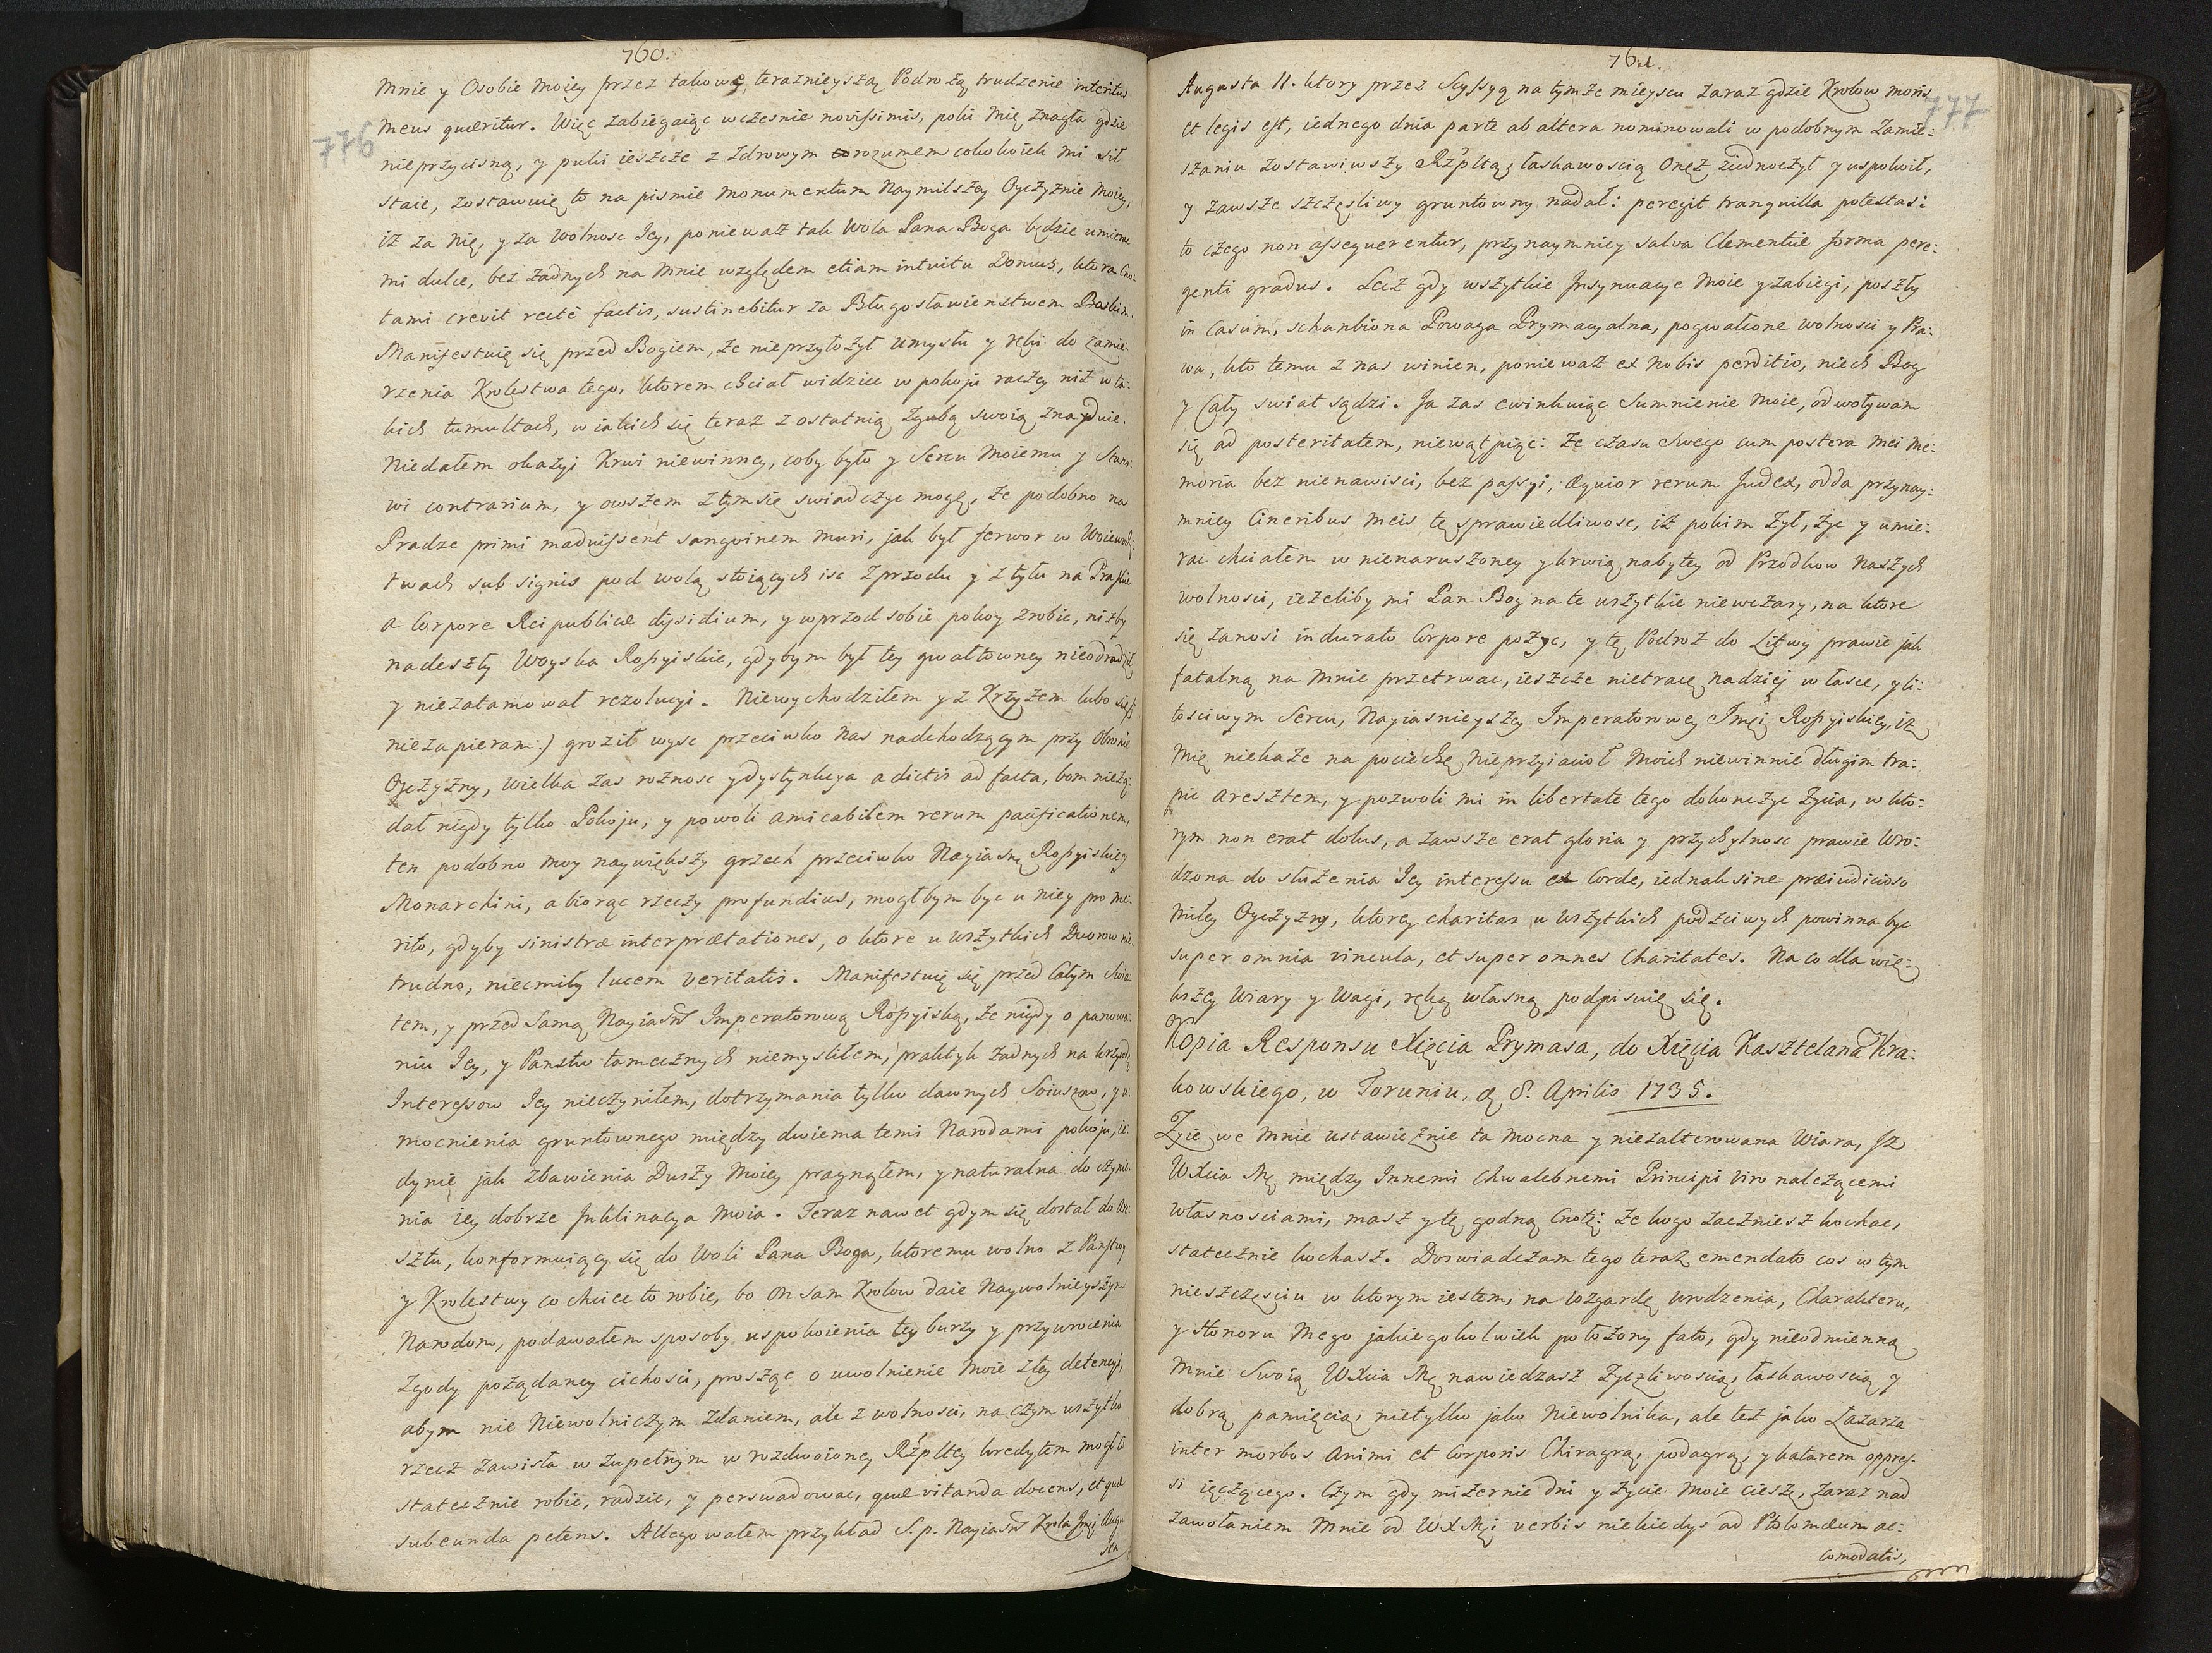 760.
776
mnie y Osobie moiey przez takową teraznieyszą Podrożą trudzenie interitus
meus quæritur. Więc zabiegaiąc wczesnie novissimis, poki mię znagła gdzie
nieprzycisną, y puki ieszcze z zdrowym rozumem cokolwiek mi sił
staie, zostawuię to na pismie monumentum Naymilszey Oyczyznie moiey,
iż za nię, y za wolnosc Iey, poniewaz tak Wola Pana Boga będzie umiera
mi dulce, bez żadnych na mnie względem etiam intuitu Domus, ktora Cno:
tami crevit recté factis, sustinebitur za Błogosławienstwem Boskim.
Manifestuię się przed Bogiem, że nieprzyłożył umysłu y ręki do zamie:
rzenia Krolestwa tego, ktorem chciał widziec w pokoju raczey niż w ta:
kich tumultach, w iakich się teraz z ostatnią zgubą swoią znayduie.
Niedałem okazyi Krwi niewinney, coby było y Sercu moiemu y Stano:
wi contrarium, y owszem ztym się swiadczyc mogę, że podobno na
Pradze primi maduissent sangvinem muri, jak był ferwor w Woiewodz:
twach sub signis pod wolą stoiących isc zprzodu y z tyłu na Praskie
a Corpore Reipublicæ dissidium, y wprzod sobie pokoy zrobic, niżby
nadeszły Woyska Rossyiskie, gdybym był tey gwałtowney nieodradził
y niezatamował rezolucyi. Niewychodziłem y z Krzyżem lubo
niezapieram:) groził wysc przeciwko nas nadchodzącym przy obronie
Oyczyzny, wielka zas rożnosc y dystynkcya a dictis ad facta, bom nieżą:
dał nigdy tylko Pokoju, y powoli amicabilem rerum pacificationem,
ten podobno moy naywiększy grzech przeciwko Nayiasn Rossyiskiey
Monarchini, a biorąc rzeczy profundius, mogłbym byc u niey pro me:
rito, gdyby sinistræ interprætationes, o ktore u wszytkich Dworow nie
trudno, niecmiły lucem veritatis. Manifestuię się przed Całym Swia:
tem, y przed Samą Nayiasn Imperatorową Rossyiską, że nigdy o panowa:
niu Iey, y Panstw tamecznych niemysliłem, praktyk żadnych na krzywdę
Interessow Iey nieczyniłem, dotrzymania tylko dawnych Soiuszow, y u:
mocnienia gruntownego między dwiema temi Narodami pokoju, ie:
dynię jak zbawienia Duszy moiey pragnąłem, y naturalna do czynie:
nia iey dobrze Inklinacya moia. Teraz nawet gdym się dostał do Are:
sztu, konformuiący się do Woli Pana Boga, ktoremu wolno z Panstwy
y Krolestwy co chce to robic, bo on sam Krolow daie Naywolnieyszym
Narodom, podawałem sposoby uspokoienia tey burzy y przywrocenia
zgody pożądaney cichosci, prosząc o uwolnienie moie z tey detencyi,
abym nie Niewolniczym zdaniem, ale z wolnosci, na czym wszytko
rzecz zawisła w zupełnym w rozdwoioney Rzpltey kredytem mogł to
statecznie robic, radzic, y perswadowac, quæ vitanda docens, et quæ
subeunda petens. Allegowałem przykład S.p. Nayiasn Krola Jmci Augu
sta
761.
777
Augusta II. ktory przez Scyssyą na tymze mieyscu zaraz gdzie Krolow moris
et legis est, iednego dnia parte ab altera nominowali w podobnym zamie:
szaniu zostawiwszy Rzpltą, łaskawoscią onęż ziednoczył y uspokoił,
y zawsze szczęsliwy gruntowny nadał: peregit tranquilla potestas:
to czego non assequerentur, przynaymniey salva Clementiæ forma pere:
genti gradus. Lecz gdy wszytkie Insynuacye moie y zabiegi, poszły
in Casum, schanbiona Powaga Prymacyalna, pogwałcone wolnosci y Pra:
wa, kto temu z nas winien, poniewaz ex nobis perditio, niech Bog
y Cały swiat sądzi. Ja zas ewinkuiąc Sumnienie moie, odwoływam
się ad posteritatem, niewątpiąc: że czasu swego cum postera mei me:
moria bez nienawisci, bez passyi, æquior rerum Judex, odda przynay:
mniey Cineribus meis tę sprawiedliwosc, iż pokim żył, życ y umie:
rac chciałem w nienaruszoney y krwią nabytey od Przodkow naszych
wolnosci, ieżeliby mi Pan Bog na te wszytkie niewczasy, na ktore
się zanosi indurato Corpore pożyc, y tę Podroż do Litwy prawie jak
fatalną na mnie przetrwac, ieszcze nietracę nadziei w łasce, y li:
tosciwym Sercu, Nayiasnieyszey Imperatorowey Jmci Rossyiskiey, iż
mię niekaże na pociechę Nieprzyiacioł moich niewinnie długim tra:
pic aresztem, y pozwoli mi in libertate tego dokonczyc życia, w kto:
rym non erat dolus, a zawsze erat gloria y przychylnosc prawie wro:
dzona do służenia Iey interessu ex Corde, iednak sine præiudicioso
miłey Oyczyzny, ktorey charitas u wszytkich podzciwych powinna byc
super omnia vincula, et super omnes Charitates. Na co dla wię:
kszey Wiary y Wagi, ręką własną podpisuię się.
Kopia Responsu Xięcia Prymasa, do Xięcia Kasztelana Kra:
kowskiego, w Toruniu, d. 8. Aprilis 1735.
Zyie we mnie ustawicznie ta mocna y niezalterowana Wiara, Jż
WXcia Mc między Innemi Chwalebnemi Principi viro należącemi
własnosciami, masz y tę godną Cnotę: że kogo zaczniesz kochac,
statecznie kochasz. Doswiadczam tego teraz emendato cos w tym
nieszczęsciu w ktorym iestem, na wzgardę urodzenia, Charakteru,
y Honoru mego jakiegokolwiek położony fato, gdy nieodmienną
mnie Swoią WXcia Mc nawiedzasz życzliwoscią, łaskawoscią y
dobrą pamięcią, nietylko jako Niewolnika, ale też jako Łazarza
inter morbos animi et Corporis Chiragrą, podagrą, y katarem oppres:
si ięczącego. Czym gdy mizernie dni y życie moie cieszę, zaraz nad
zawołaniem mnie od WXMci verbis niekiedys ad Ptolomæum ac:
comodatis,